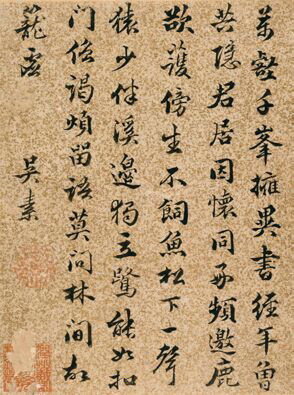 萬壑千峯擁異書經年曾
共隱君居因懷同頻邀鹿
欲護傍生不飼魚松下一聲
猿少伴溪邊獨立鷺能如扣
門俗謁煩留語莫問林間
籠虛
吳素